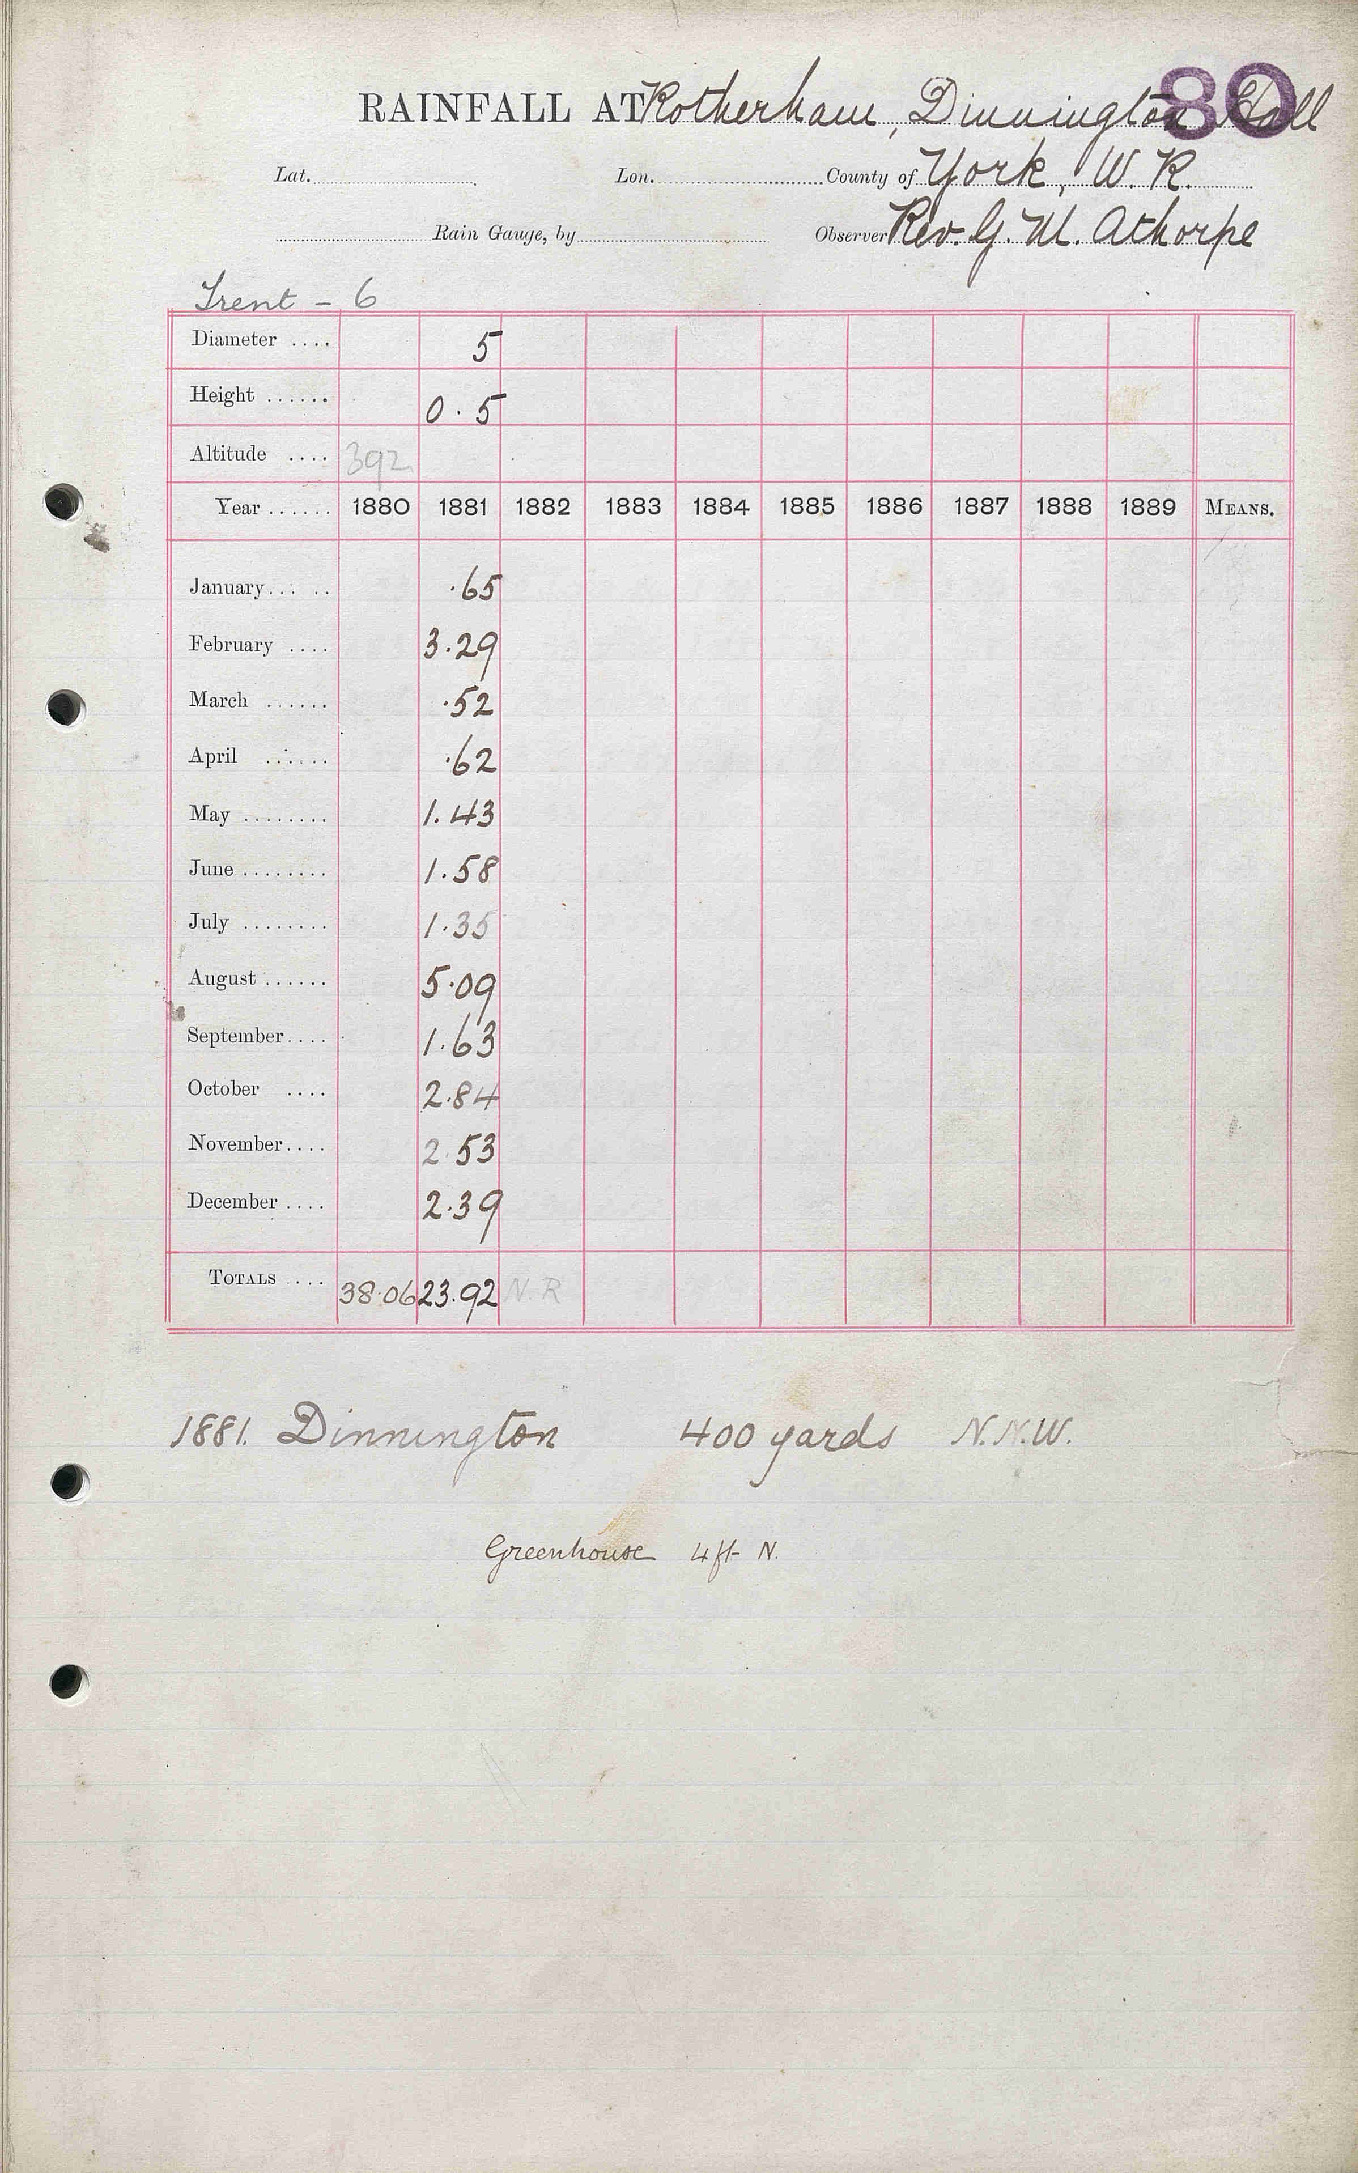 80
RAINFALL AT Rotherham, Dinnington Hall
Lat. Lon. County of York, W. R.
Rain Gauge, by Observer Rev. G. M. Athorpe
Trent - 6
Diameter .... 5
Height ...... 0.5
Altitude .... 392
Year ...... 1880 1881 1882 1883 1884 1885 1886 1887 1888 1889 MEANS.
January... .. .65
February .... 3.29
March ...... .52
April ...... .62
May ........ 1.43
June ........ 1.58
July ........ 1.35
August ...... 5.09
September.... 1.63
October .... 2.84
November.... 2.53
December .... 2.39
TOTALS .... 38.06 23.92 N.R
1881. Dinnington 400 yards N.N.W.
Greenhouse 4ft N.